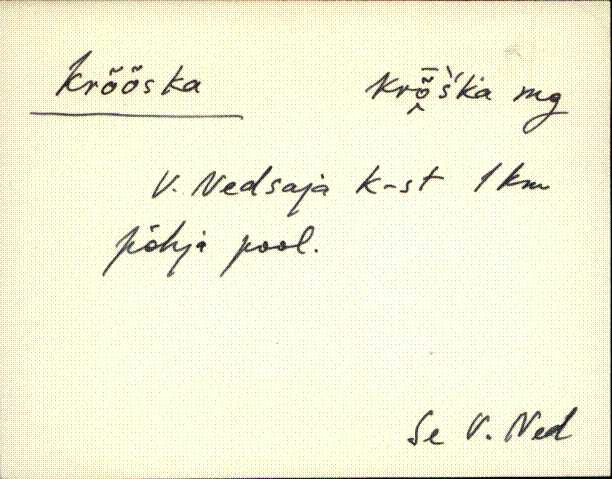 Krõõska
krȭ̭š̀ka mg
V. Nedsaja k-st 1 km
põhja pool.
Se V. Ned